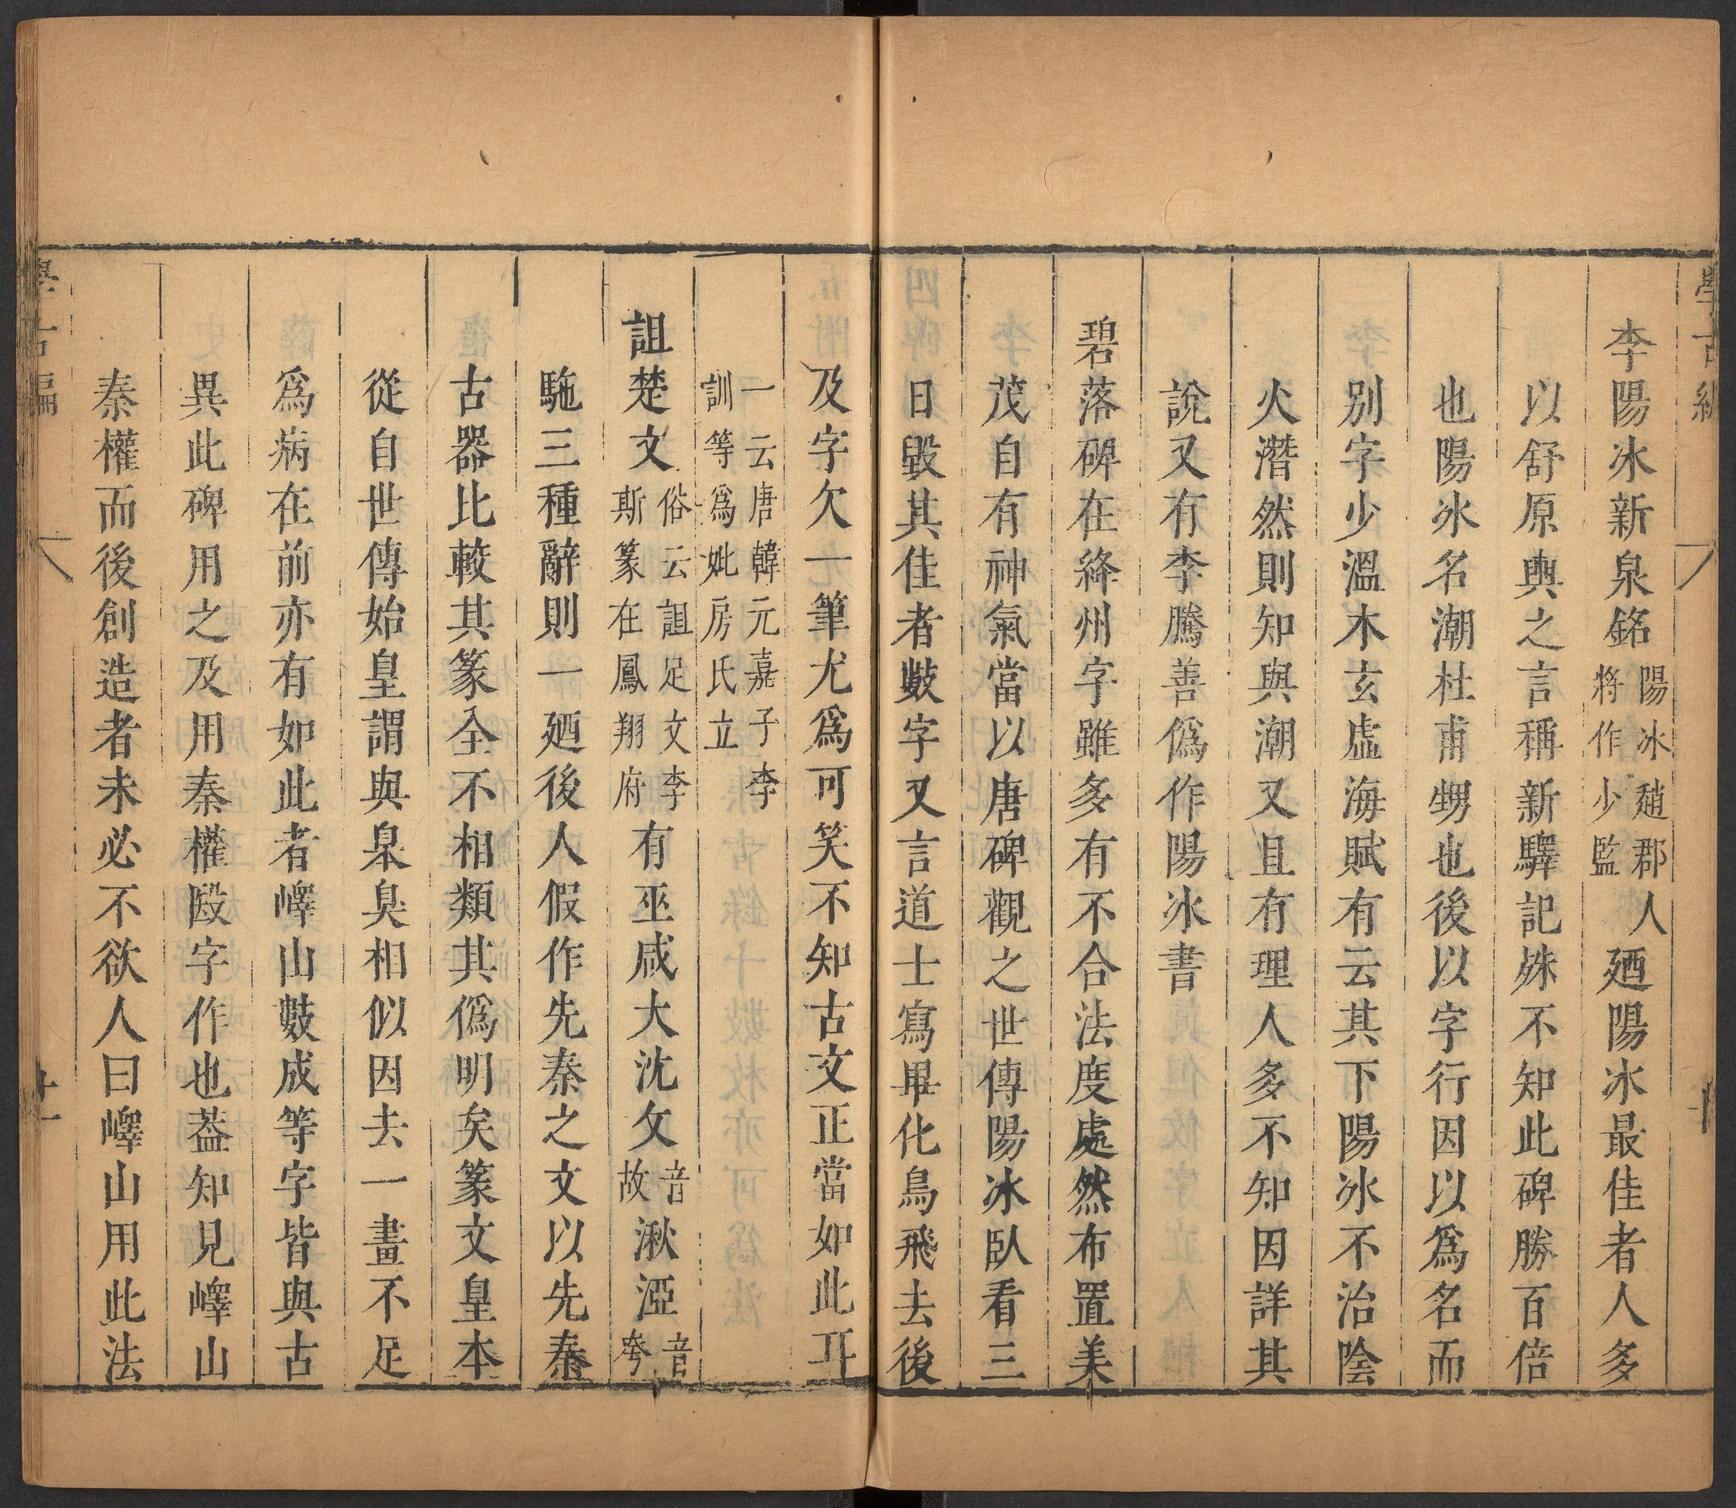 學古編
李陽冰新泉銘陽冰趙郡人將作少監廼陽冰最佳者人多
以舒原輿之言稱新驛記殊不知此碑勝百倍
也陽冰名潮杜甫甥也後以字行因以爲名而
別字少溫木玄虛海賦有云其下陽冰不治陰
火潛然則知與潮又且有理人多不知因詳其
說又有李騰善僞作陽冰書
碧落碑在絳州字雖多有不合法度處然布置美
茂自有神氣當以唐碑觀之世傳陽冰臥看三
日毀其佳者數字又言道士寫畢化鳥飛去後
及字欠一筆尤爲可笑不知古文正當如此耳
一云唐韓元嘉子李訓等爲妣房氏立
詛楚文俗云詛足文李斯篆在鳳翔府有巫咸大沈攵音故湫㴫音夸
駞三種辭則一廼後人假作先秦之文以先秦
古器比較其篆全不相類其僞明矣篆文皇本
從自世傳始皇謂與辠臭相似因去一畫不足
爲病在前亦有如此者嶧山數成等字皆與古
異此碑用之及用秦權殹字作也葢知見嶧山
秦權而後創造者未必不欲人曰嶧山用此法
學古編
十一